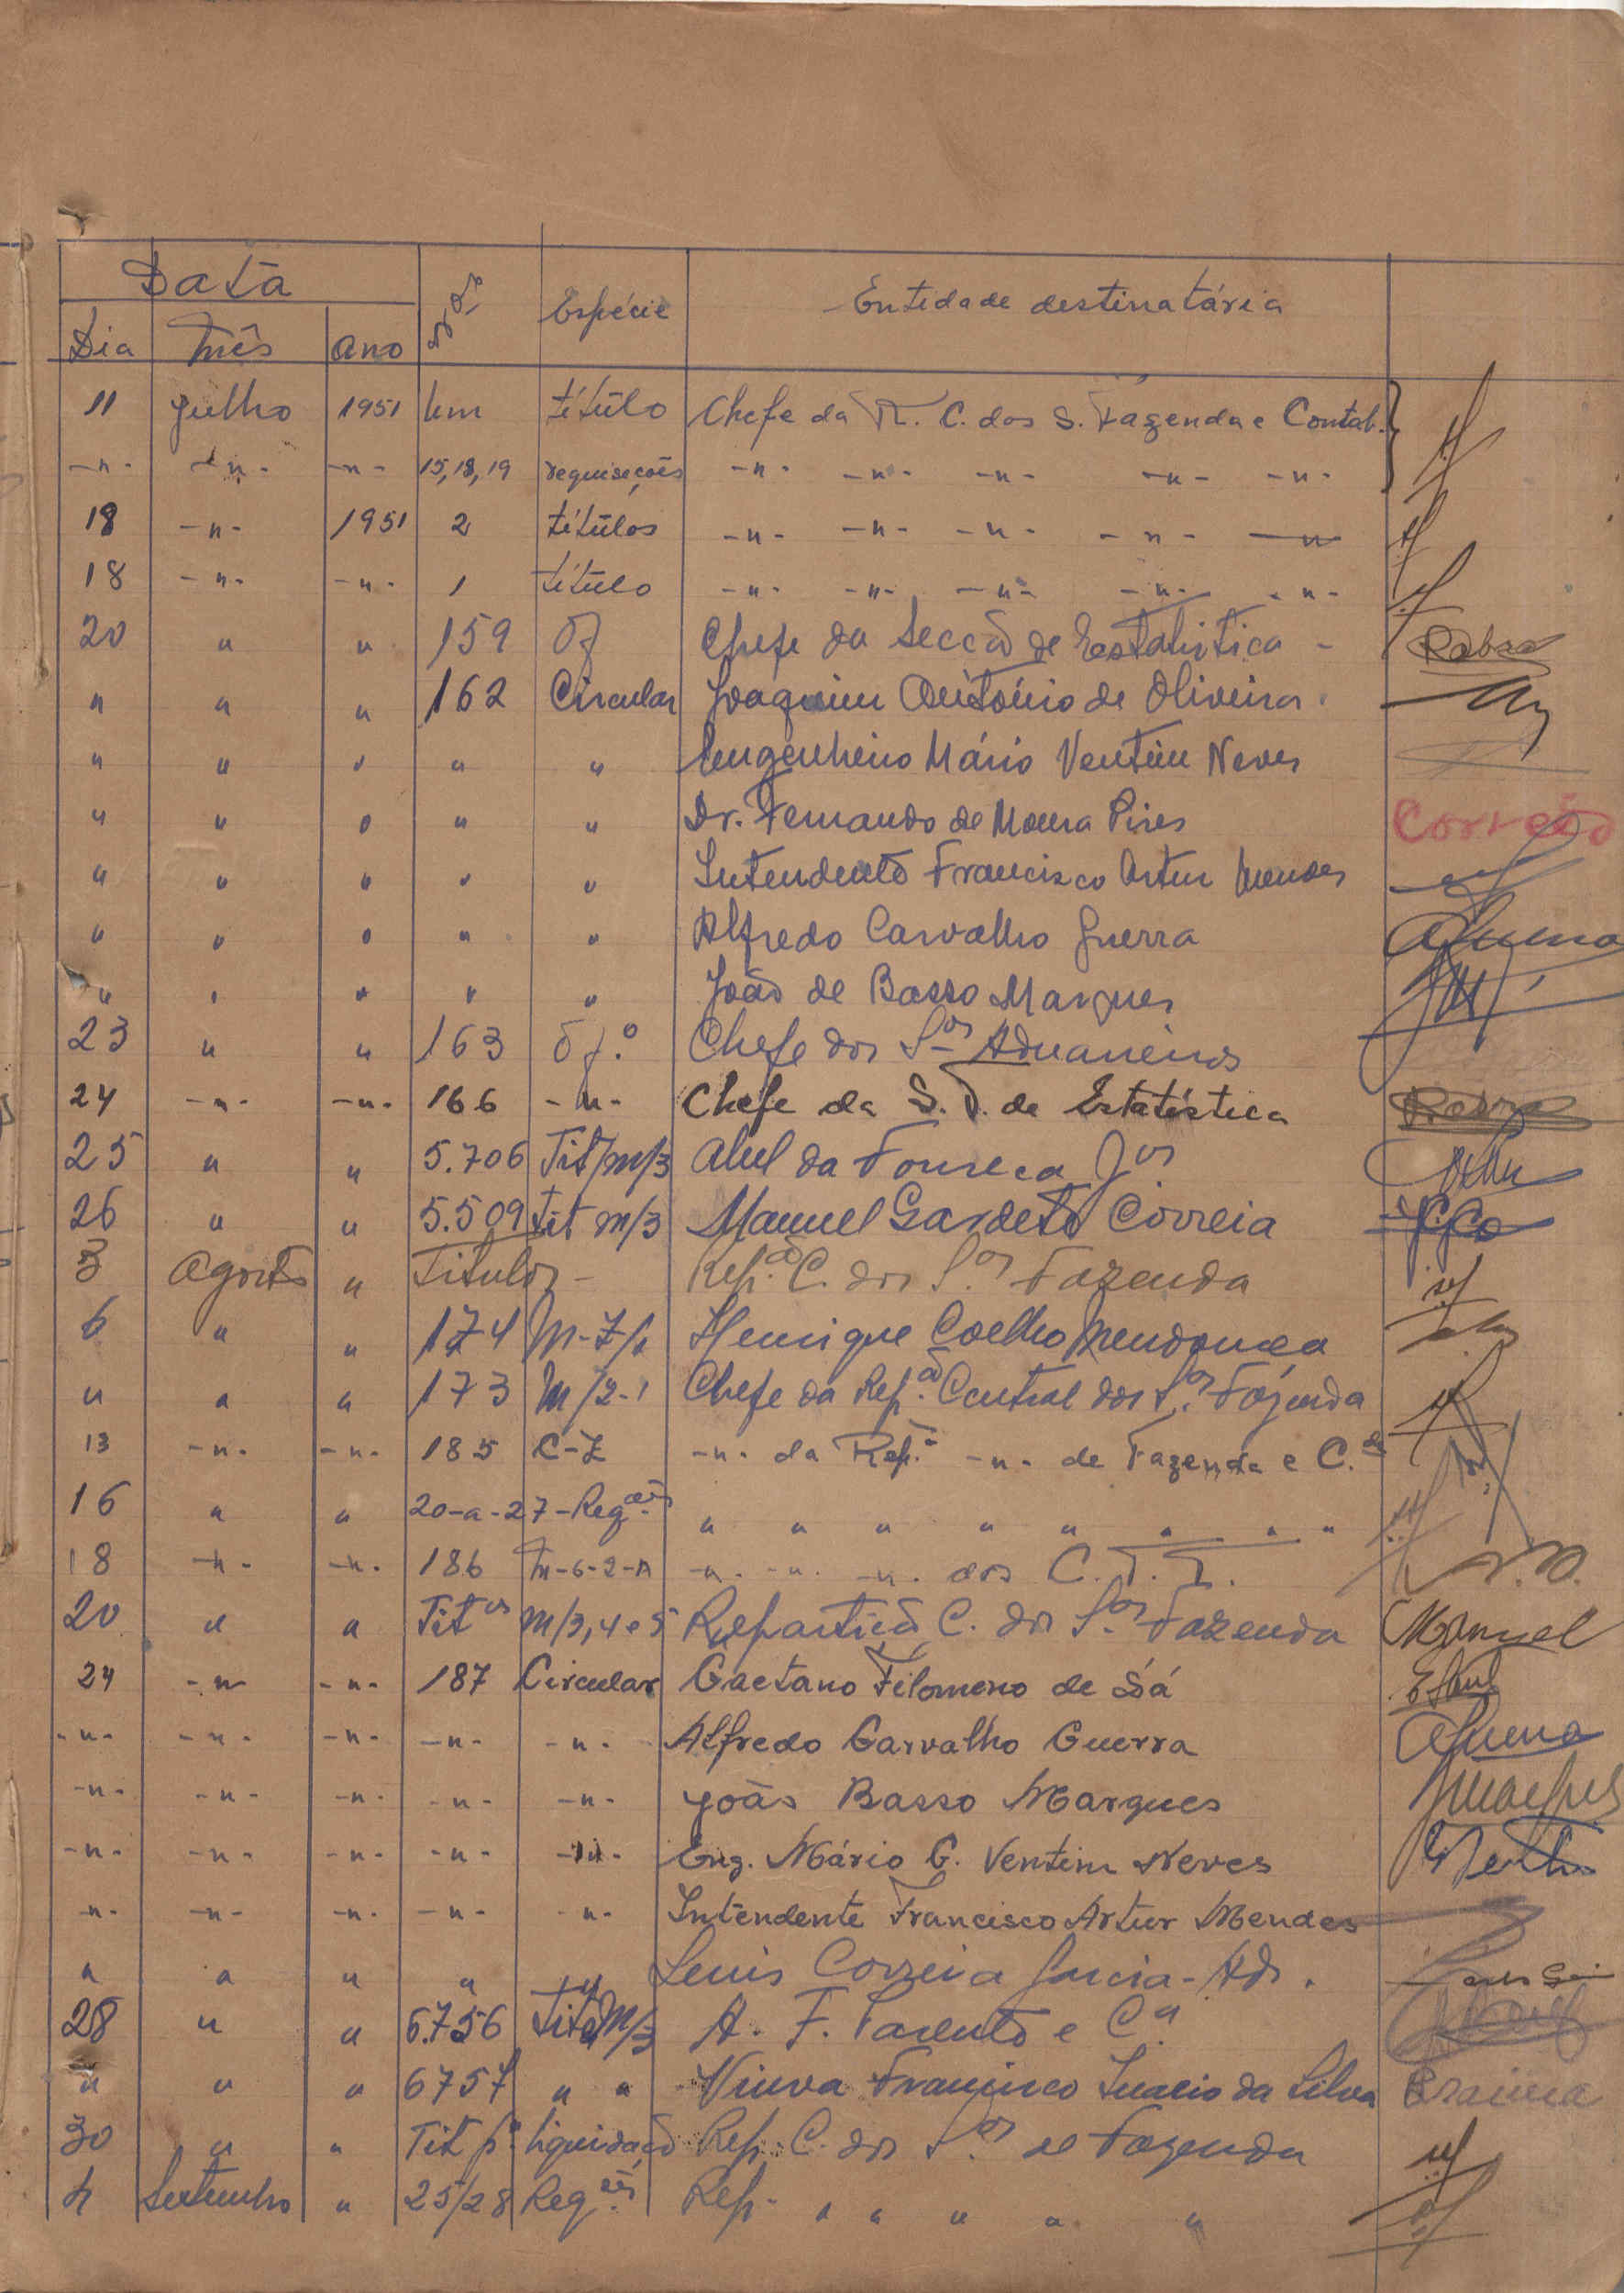 Data
N.º Espécie Entidade destinatária
Dia Mês Ano
11 Julho 1951 Um título Chefe da R. C. dos S. Fazenda e Contab.
-"- -"- -"- 15, 18, 19 requiseções -"- -"- -"- -"- -"-
18 -"- 1951 2 títulos -"- -"- -"- -"- -"-
18 -"- -"- 1 título -"- -"- -"- -"- -"-
20 " " 159 Of Chefe da Secção de Estatistica -
" " " 162 Circular Joaquim António de Oliveira
" " " " " Engenheiro Mário Ventim Neves
" " " " " Dr. Fernando de Moura Pires Correia
" " " " " Intendente Francisco Artur Mendes
" " " " " Alfredo Carvalho Guerra
" " " " " João de Basso Marques
23 " " 163 Of.º Chefe dos S.os Aduaneiros
24 -"- -"- 166 -"- Chefe da S. T. de Estatística
25 " " 5.706 Tit/m/3 Abel da Fonseca
26 " " 5.509 Tit m/3 Manuel Gardeto Correia
3 Agosto " Titulos - Rep.ão C. dos S.os Fazenda
6 " " 174 Henrique Coelho Mendonça
" " " 173 M/2-1 Chefe da Rep.ão Central dos S.os Fazenda
13 -"- -"- 185 C-Z -"- da Rep. -"- de Fazenda e C.de
16 " " 20-a-27-Reqões " " " " " " " "
18 -"- -"- 186 M-6-2-A -"- -"- -"- dos C. T. T.
20 " " Titos m/3, 4 e 5 Repartição C. dos S.os Fazenda Manuel
24 -"- -"- 187 Circular Caetano Filomeno de Sá
-"- -"- -"- -"- -"- Alfredo Carvalho Guerra
-"- -"- -"- -"- -"- João Basso Marques
-"- -"- -"- -"- -"- Eng. Mário G. Ventim Neves
-"- -"- -"- -"- -"- Intendente Francisco Artur Mendes
" " " " " Luis Correia Garcia - Adr.
28 " " 6.756 Tit M/3 A. F. Parento e C.a
" " " 6757 " " Viuva Francisco Inacio da Silva
30 " " Tit p.a liquidação Rep. C. dos S.os de Fazenda
4 Setembro " 25/28 Reqões Rep. " " " " "